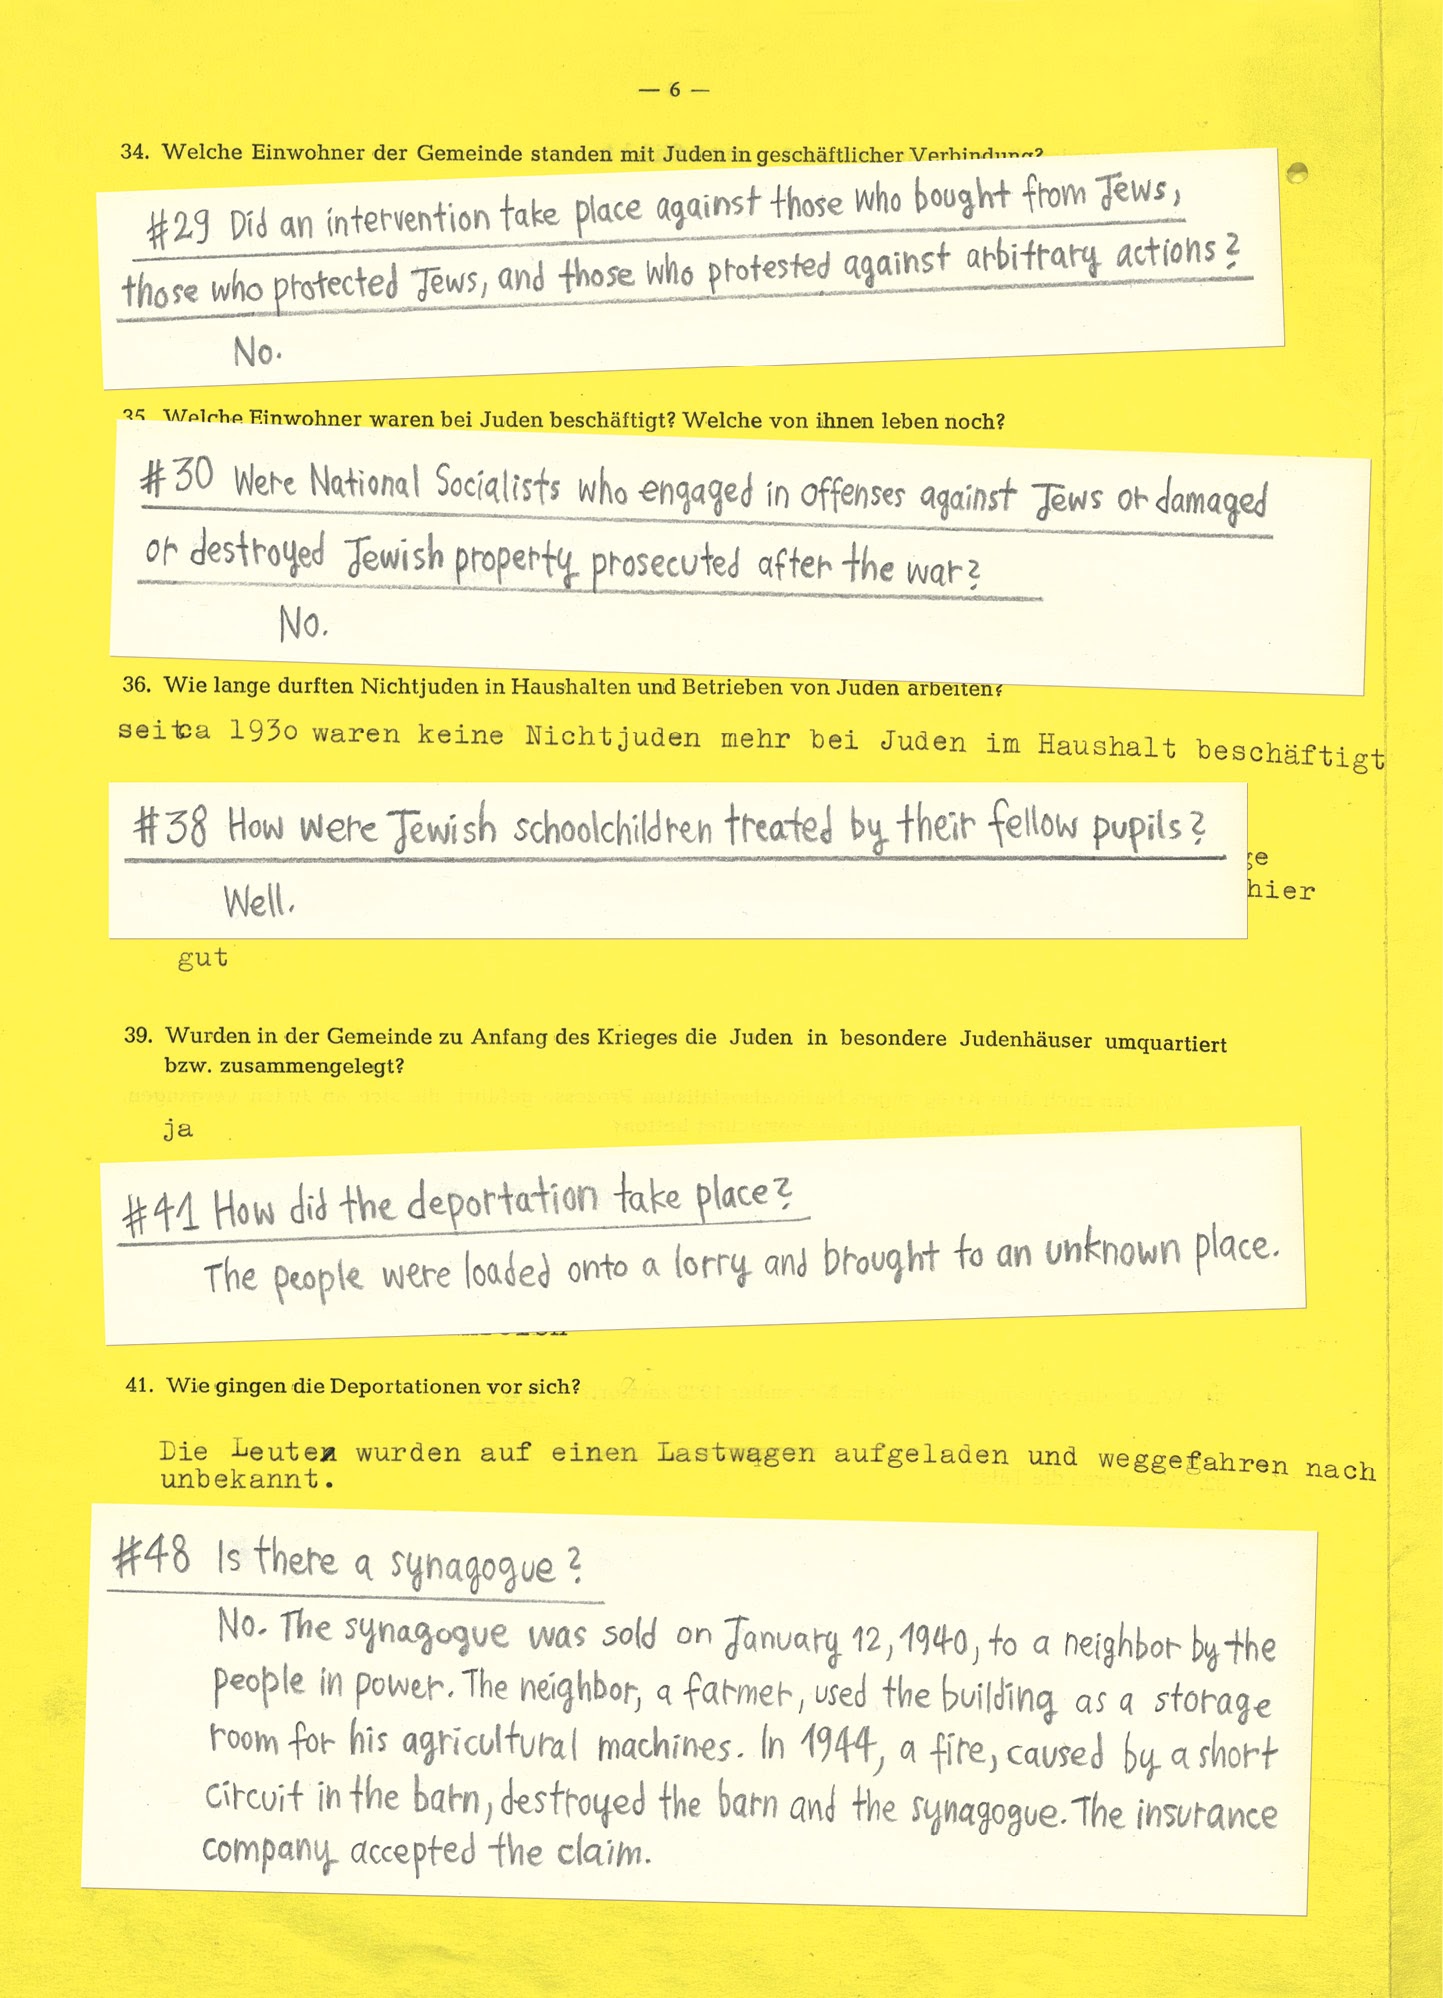 — 6 —
34. Welche Einwohner der Gemeinde standen mit Juden in geschäftlicher Verbindung?
#29 Did an intervention take place against those who bought from Jews,
those who protected Jews, and those who protested against arbitrary actions?
No.
35. Welche Einwohner waren bei Juden beschäftigt? Welche von ihnen leben noch?
#30 Were National Socialists who engaged in offenses against Jews or damaged
or destroyed Jewish property prosecuted after the war?
No.
36. Wie lange durften Nichtjuden in Haushalten und Betrieben von Juden arbeiten?
seit ca 1930 waren keine Nichtjuden mehr bei Juden im Haushalt beschäftigt
#38 How were Jewish schoolchildren treated by their fellow pupils?
ge
hier
Well.
gut
39. Wurden in der Gemeinde zu Anfang des Krieges die Juden in besondere Judenhäuser umquartiert
bzw. zusammengelegt?
ja
#41 How did the deportation take place?
The people were loaded onto a lorry and brought to an unknown place.
41. Wie gingen die Deportationen vor sich?
Die Leute wurden auf einen Lastwagen aufgeladen und weggefahren nach
unbekannt.
#48 Is there a synagogue?
No. The synagogue was sold on January 12, 1940, to a neighbor by the
people in power. The neighbor, a farmer, used the building as a storage
room for his agricultural machines. In 1944, a fire, caused by a short
circuit in the barn, destroyed the barn and the synagogue. The insurance
company accepted the claim.